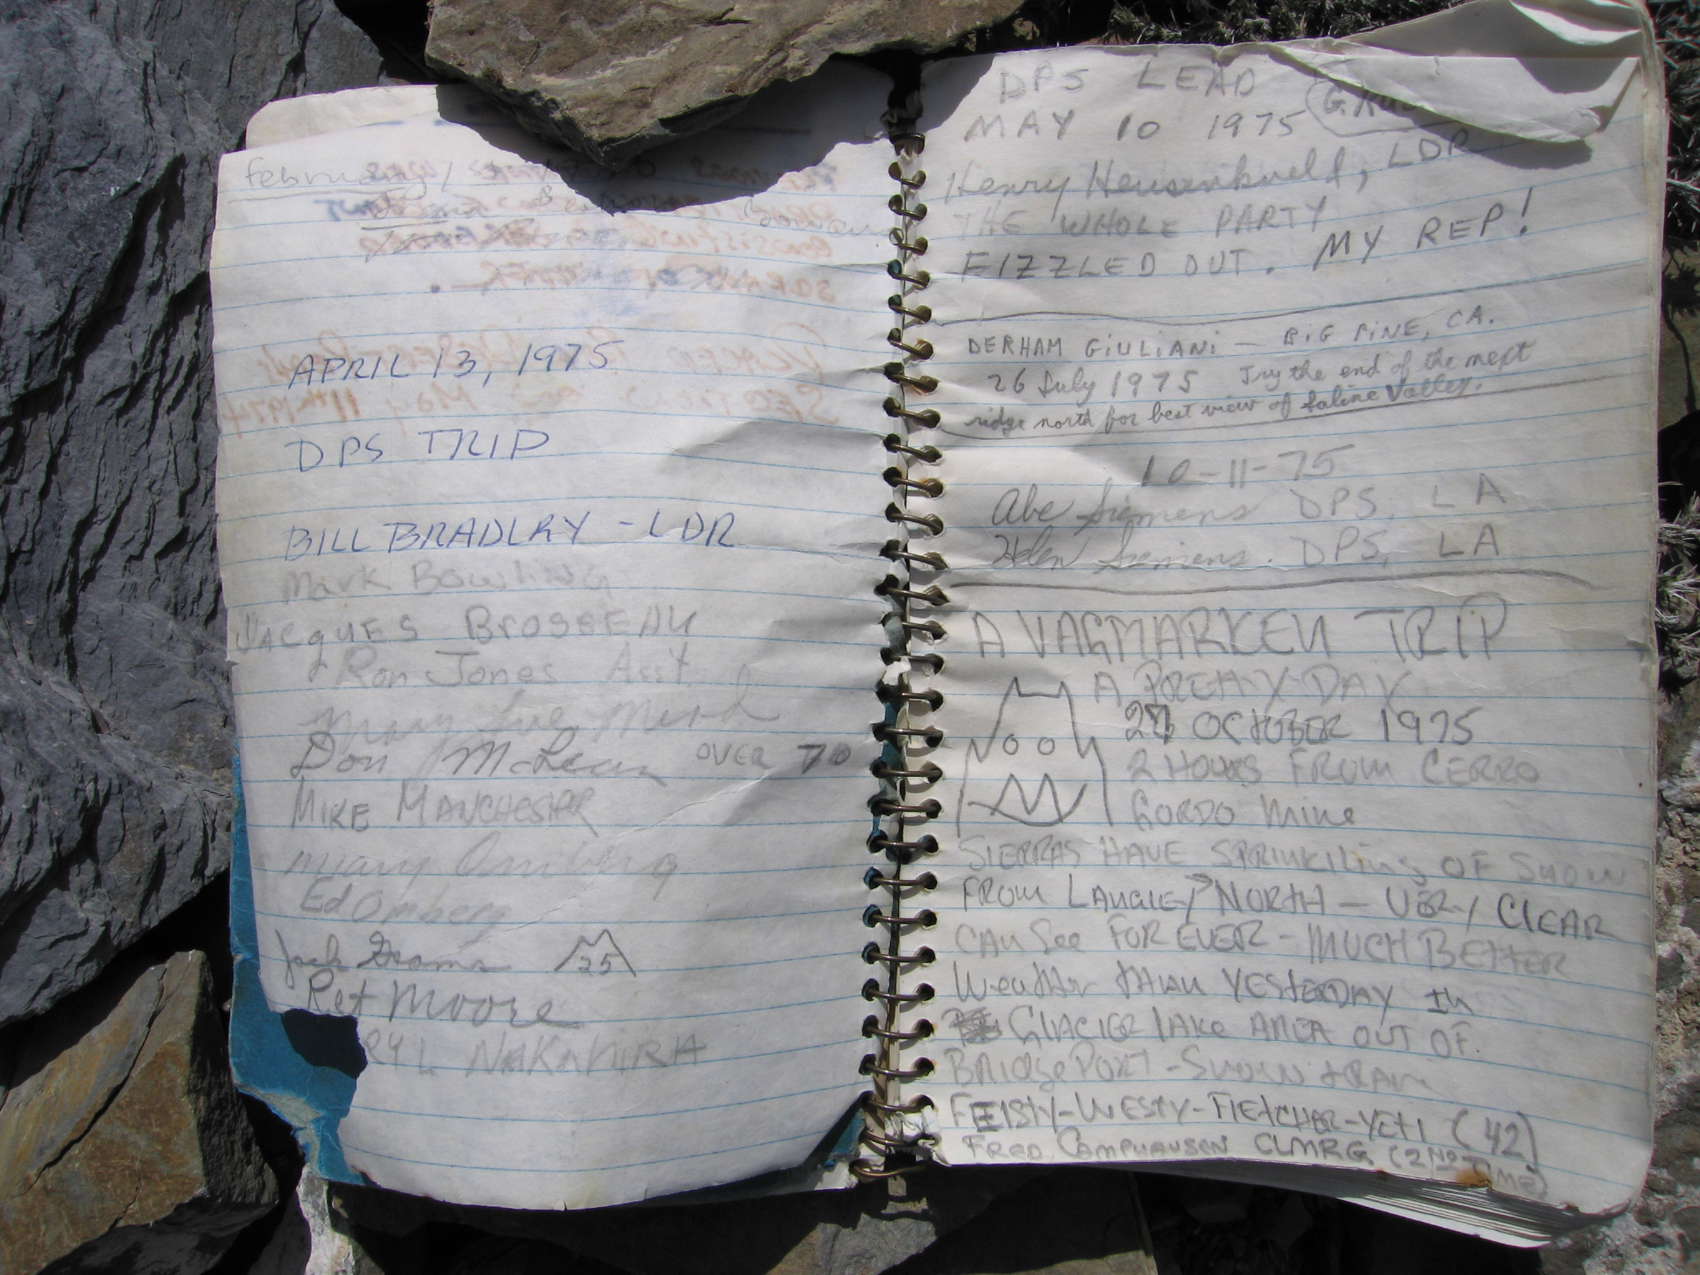 February
APRIL 13, 1975
DPS TRIP
BILL BRADLRY - LDR
Mark Bowling
JACQUES BROSSEAU
Ron Jones Ass't
Mary Sue
Don McLean OVER 70
MIKE MANCHESTER
Mary Omberg
Ed Omberg
Jack Grams 25
Ret Moore
RYL NAKAHIRA
DPS LEAD
MAY 10 1975
Henry Heusinkveld, LDR
THE WHOLE PARTY
FIZZLED OUT. MY REP!
DERHAM GIULIANI — BIG PINE, CA.
26 July 1975 Try the end of the next
ridge north for best view of Saline Valley.
10-11-75
Abe Siemens DPS, LA
Helen Siemens. DPS, LA
A VAGMARKEN TRIP
A PRETTY DAY
27 OCTOBER 1975
2 HOURS FROM CERRO
GORDO MINE
SIERRAS HAVE SPRINKILING OF SNOW
FROM LANGLEY NORTH — VERY CLEAR
CAN SEE FOR EVER - MUCH BETTER
WEATHER THAN YESTERDAY IN
GLACIER LAKE AREA OUT OF
BRIDGEPORT -
FEISTY-WESTY-FLETCHER-YETI (42)
FRED CAMPHAUSEN CLMRG (2ND TIME)